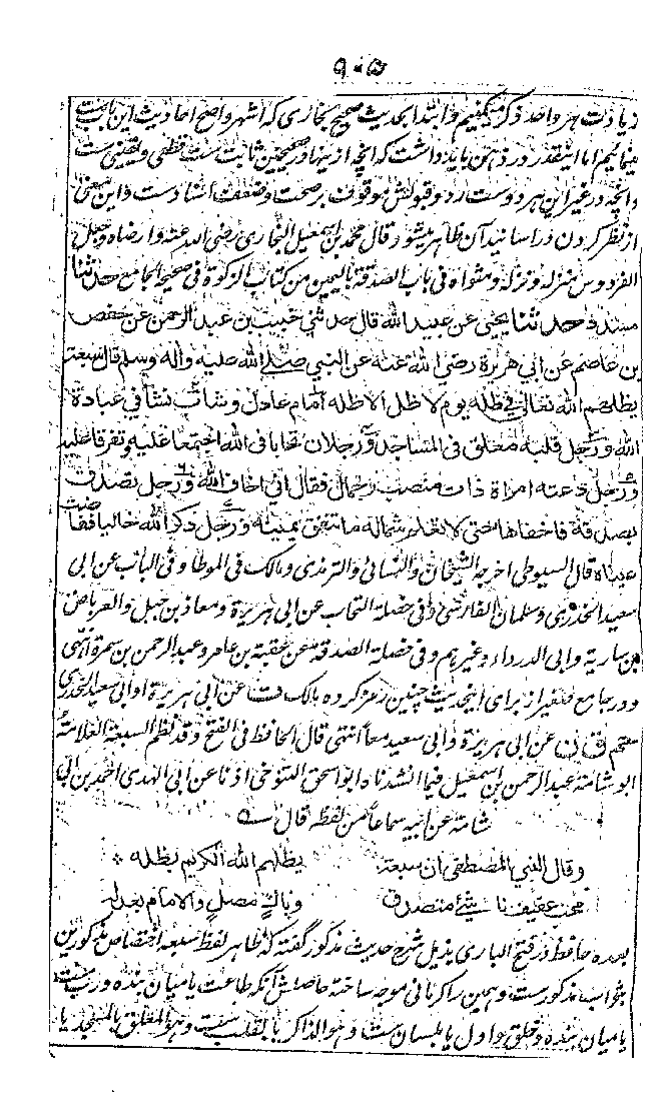 ۹۰۵
زیادت هر واحد ذکر میکنیم و ابتدا بحدیث صحیح بخاری که اشهر و اصح احادیث این باب ست
مینمائیم اما اینقدر در ذهن باید داشت که انچه از ینها در صحیحین ثابت ست قطعی و یقینی ست
و انچه در غیر این هر دوست رد و قبولش موقوف بر صحت و ضعف اسناد ست و این معنی
از نظر کردن در اسانید آن ظاهر میشود قال محمد بن اسمعیل البخاری رضی الله عنه و ارضاه و جعل
الفردوس منزله و نزله و مثواه فی باب الصدقة بالیمین من کتاب الزکوة فی صحیحه الجامع حدثنا
مسدد حدثنا یحیی عن عبید الله قال حدثنی خبیب بن عبد الرحمن عن حفص
بن عاصم عن ابی هریرة رضی الله عنه عن النبی صلے الله علیه واله وسلم قال سبعة
یظلهم الله تعالی فی ظله یوم لا ظل الا ظله امام عادل وشاب نشأ فی عبادة
الله ورجل قلبه معلق فی المساجد ورجلان تحابا فی الله اجتمعا علیه وتفرقا علیه
ورجل دعته امرأة ذات منصب وجمال فقال انی اخاف الله ورجل تصدق
بصدقة فاخفاها حتی لا تعلم شماله ما تنفق یمینه ورجل ذکر الله خالیا ففاضت
عیناه قال السیوطی اخرجه الشیخان والنسائی والترمذی ومالک فی الموطا وفی الباب عن ابی
سعید الخدری وسلمان الفارسی وفی خصلة التحاب عن ابی هریرة ومعاذ بن جبل والعرباض
بن ساریة وابی الدرداء وغیرهم وفی خصلة الصدقة عن عقبة بن عامر وعبد الرحمن بن سمرة انتهی
و در جامع صغیر از برای اینحدیث چنین رمز کرده مالک ت عن ابی هریرة او ابی سعید الخدری
حم ق ن عن ابی هریرة وابی سعید معا انتهی قال الحافظ فی الفتح وقد نظم السبعة العلامة
ابو شامة عبد الرحمن بن اسمعیل فیما انشدناه ابو اسحق التنوخی اذنا عن ابی الهدی احمد بن ابی
شامة عن ابیه سماعا من لفظه قال
وقال النبی المصطفی ان سبعة یظلهم الله الکریم بظله
محب عفیف ناشئ متصدق وباک مصل والامام بعدله
بعده حافظ در فتح الباری بذیل شرح حدیث مذکور گفته که ظاهر لفظ سبعه اختصاص مذکورین
بثواب مذکور ست و همین را کرمانی موجه ساخته حاصلش آنکه طاعت یا میان بنده و رب ست
یا میان بنده و خلق و اول یا بلسان ست و هو الذاکر یا بقلب ست و هو المعلق بالمسجد یا